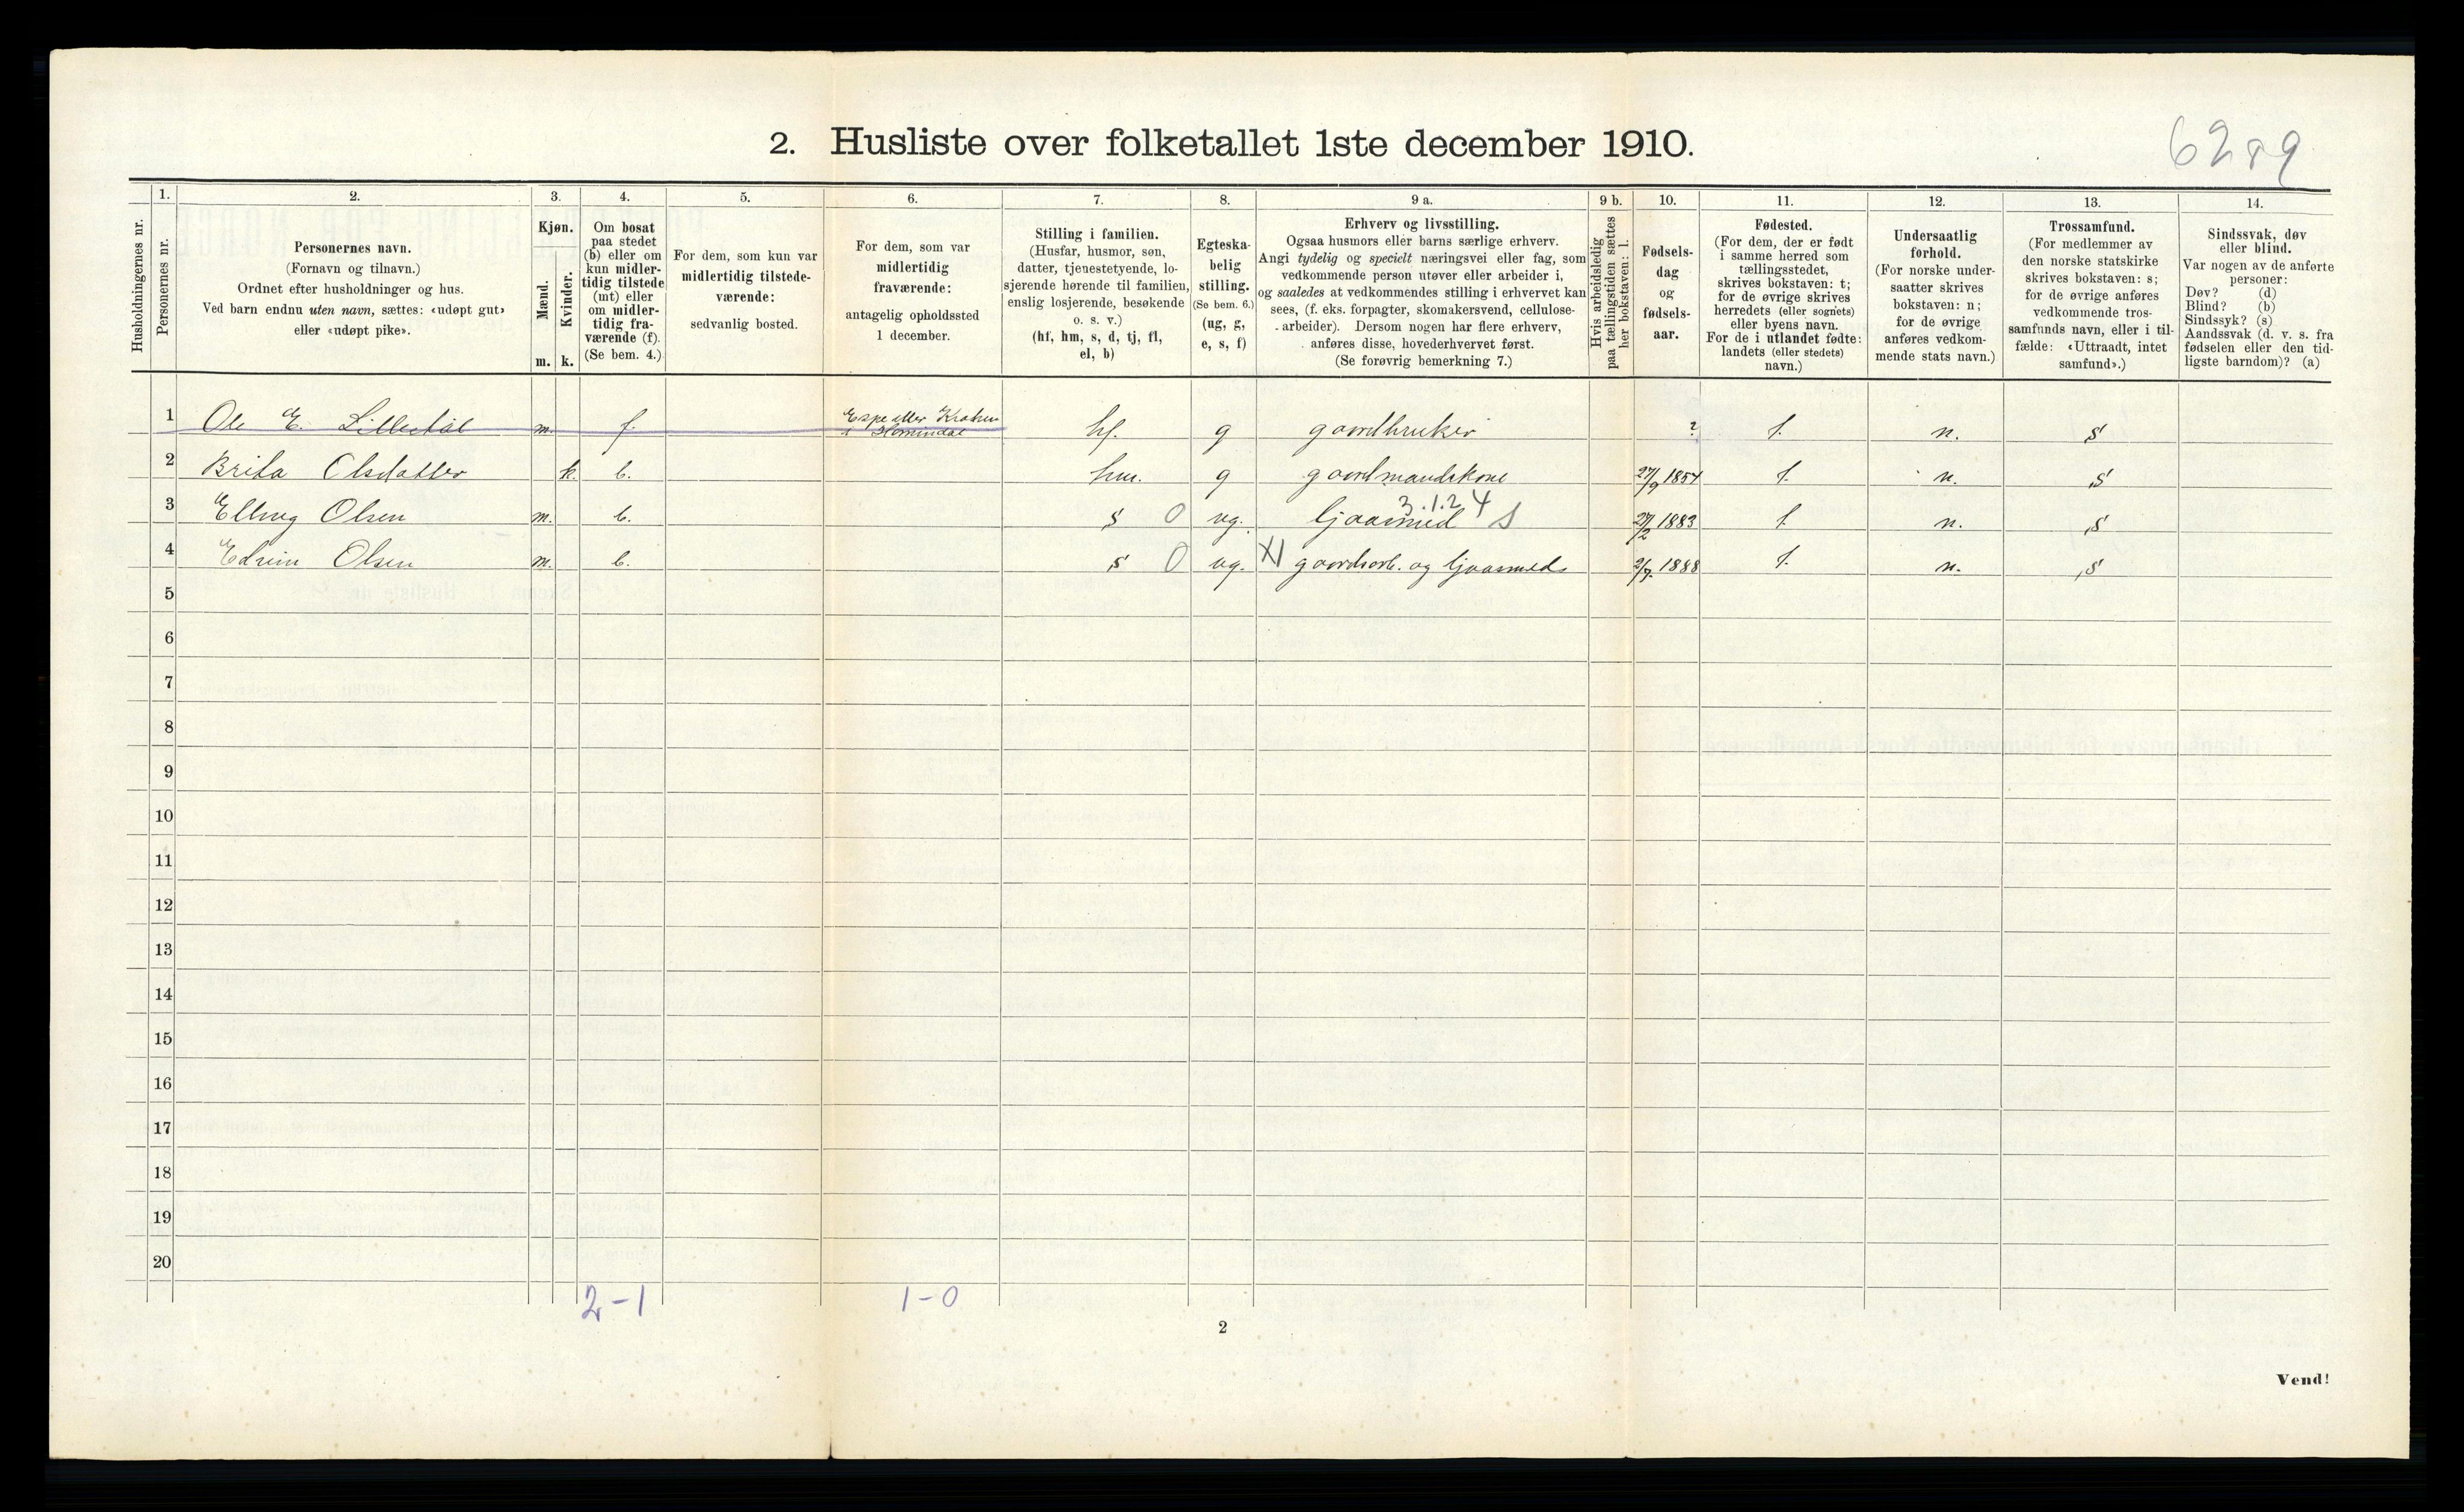 2. Husliste over folketallet 1ste december 1910.
6289
1. 2. 3. 4. 5. 6. 7. 8. 9 a. 9 b. 10. 11. 12. 13. 14.
Husholdningernes nr.
Personernes nr.
Personernes navn.
(Fornavn og tilnavn.)
Ordnet efter husholdninger og hus.
Ved barn endnu uten navn, sættes: «udøpt gut»
eller «udøpt pike».
Kjøn.
Mænd.
m.
Kvinder.
k.
Om bosat
paa stedet
(b) eller om
kun midler-
tidig tilstede
(mt) eller
om midler-
tidig fra-
værende (f).
(Se bem. 4.)
For dem, som kun var
midlertidig tilstede-
værende:
sedvanlig bosted.
For dem, som var
midlertidig
fraværende:
antagelig opholdssted
1 december.
Stilling i familien.
(Husfar, husmor, søn,
datter, tjenestetyende, lo-
sjerende hørende til familien,
enslig losjerende, besøkende
o. s. v.)
(hf, hm, s, d, tj, fl,
el, b)
Egteska-
belig
stilling.
(Se bem. 6.)
(ug, g,
e, s, f)
Erhverv og livsstilling.
Ogsaa husmors eller barns særlige erhverv.
Angi tydelig og specielt næringsvei eller fag, som
vedkommende person utøver eller arbeider i,
og saaledes at vedkommendes stilling i erhvervet kan
sees, (f. eks. forpagter, skomakersvend, cellulose-
arbeider). Dersom nogen har flere erhverv,
anføres disse, hovederhvervet først.
(Se forøvrig bemerkning 7.)
Hvis arbeidsledig
paa tællingstiden sættes
her bokstaven: l.
Fødsels-
dag
og
fødsels-
aar.
Fødested.
(For dem, der er født
i samme herred som
tællingsstedet,
skrives bokstaven: t;
for de øvrige skrives
herredets (eller sognets)
eller byens navn.
For de i utlandet fødte:
landets (eller stedets)
navn.)
Undersaatlig
forhold.
(For norske under-
saatter skrives
bokstaven: n;
for de øvrige
anføres vedkom-
mende stats navn.)
Trossamfund.
(For medlemmer av
den norske statskirke
skrives bokstaven: s;
for de øvrige anføres
vedkommende tros-
samfunds navn, eller i til-
fælde: «Uttraadt, intet
samfund».)
Sindssvak, døv
eller blind.
Var nogen av de anførte
personer:
Døv? (d)
Blind? (b)
Sindssyk? (s)
Aandssvak (d. v. s. fra
fødselen eller den tid-
ligste barndom)? (a)
1 Ole E. m. f. hf. g gaardbruker ? t. n. s
2 Brita Olsdatter k. b. hm. g gaardmandskone 27/9 1854 t. n. s
3.1.2 4
3 Elling Olsen m. b. s 0 ug. ljaasmed 27/2 1883 t n. s
4 Edvin Olsen m. b. s 0 ug. XI gaardsarb. og ljaasmed 2/7. 1888 t. n. s
5
6
7
8
9
10
11
12
13
14
15
16
17
18
19
20
2-1 1-0
2
Vend!